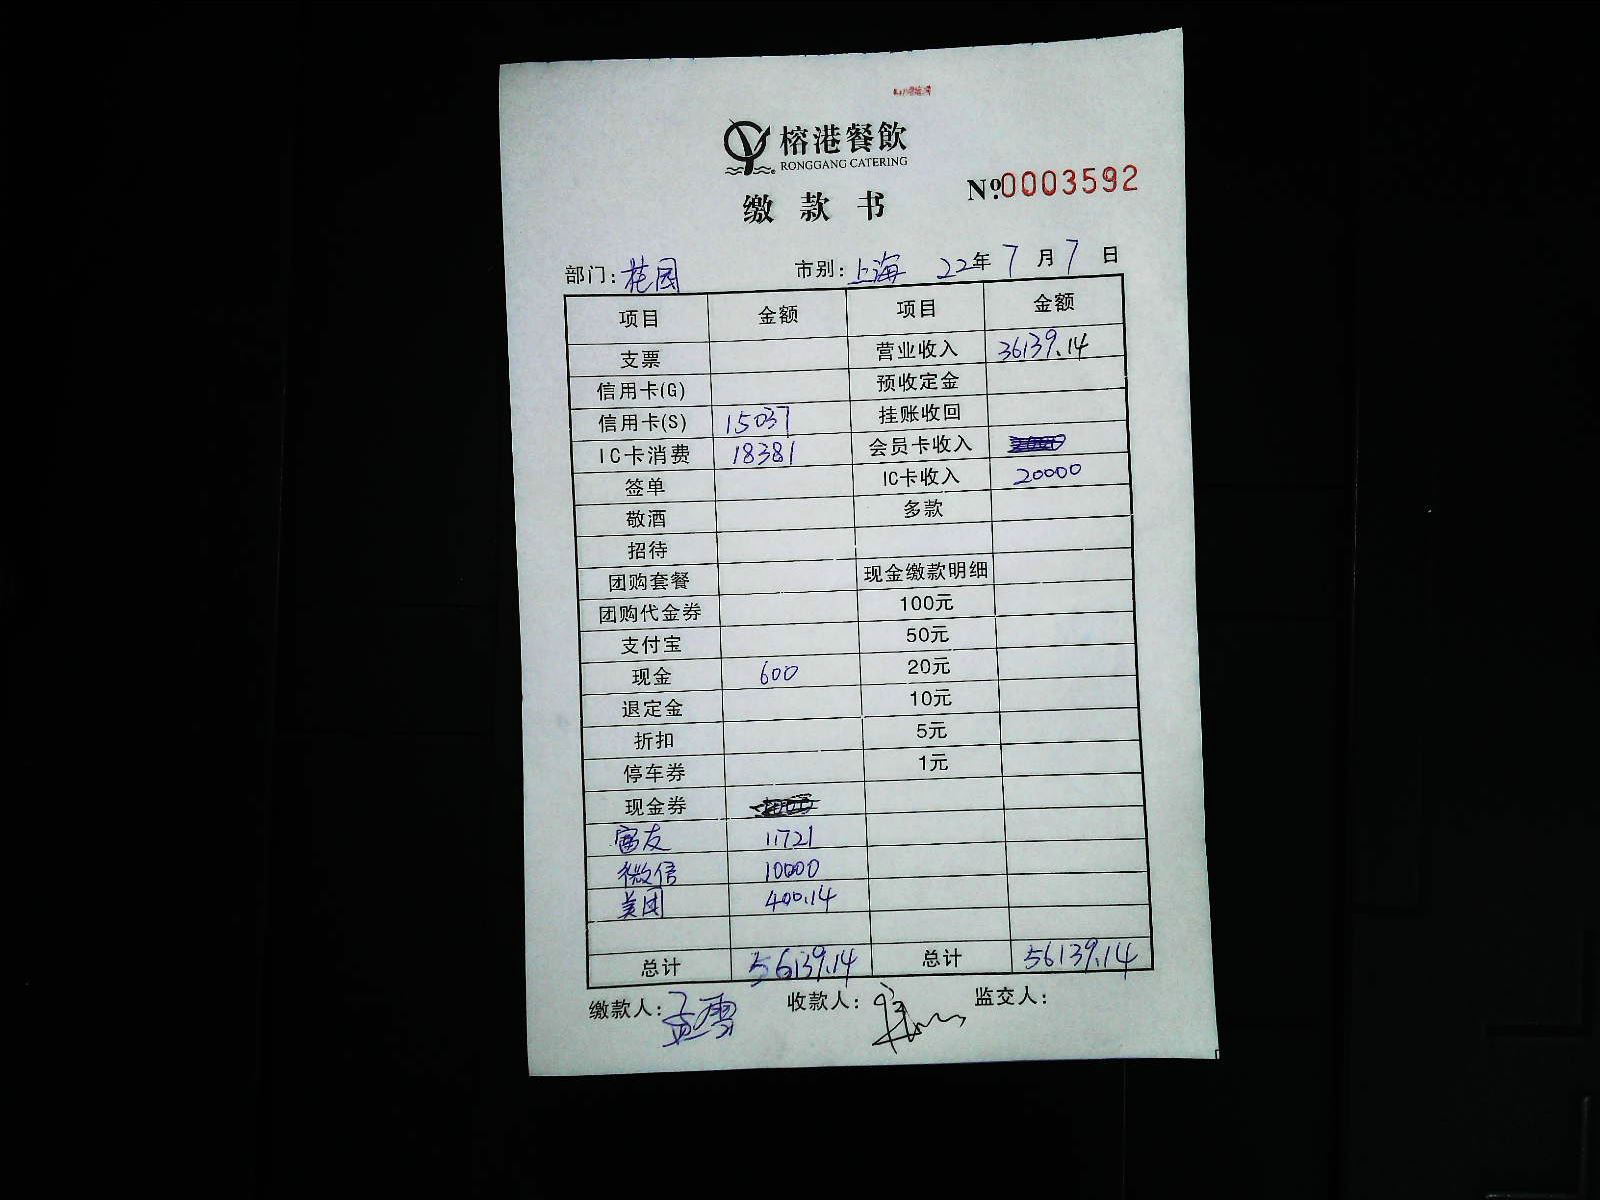 榕港餐飲
RONGGANG CATERING
缴款书
Nº.0003592
部门: 花园 市别: 上海 22年7月7日
项目 金额 项目 金额
支票 营业收入 36139.14
信用卡(G) 预收定金
信用卡(S) 15037 挂账收回
IC卡消费 18381 会员卡收入
签单 IC卡收入 20000
敬酒 多款
招待
团购套餐 现金缴款明细
团购代金券 100元
支付宝 50元
现金 600 20元
退定金 10元
折扣 5元
停车券 1元
现金券
富友 11721
微信 10000
美团 400.14
总计 56139.14 总计 56139.14
缴款人: 孟雪 收款人: 监交人: